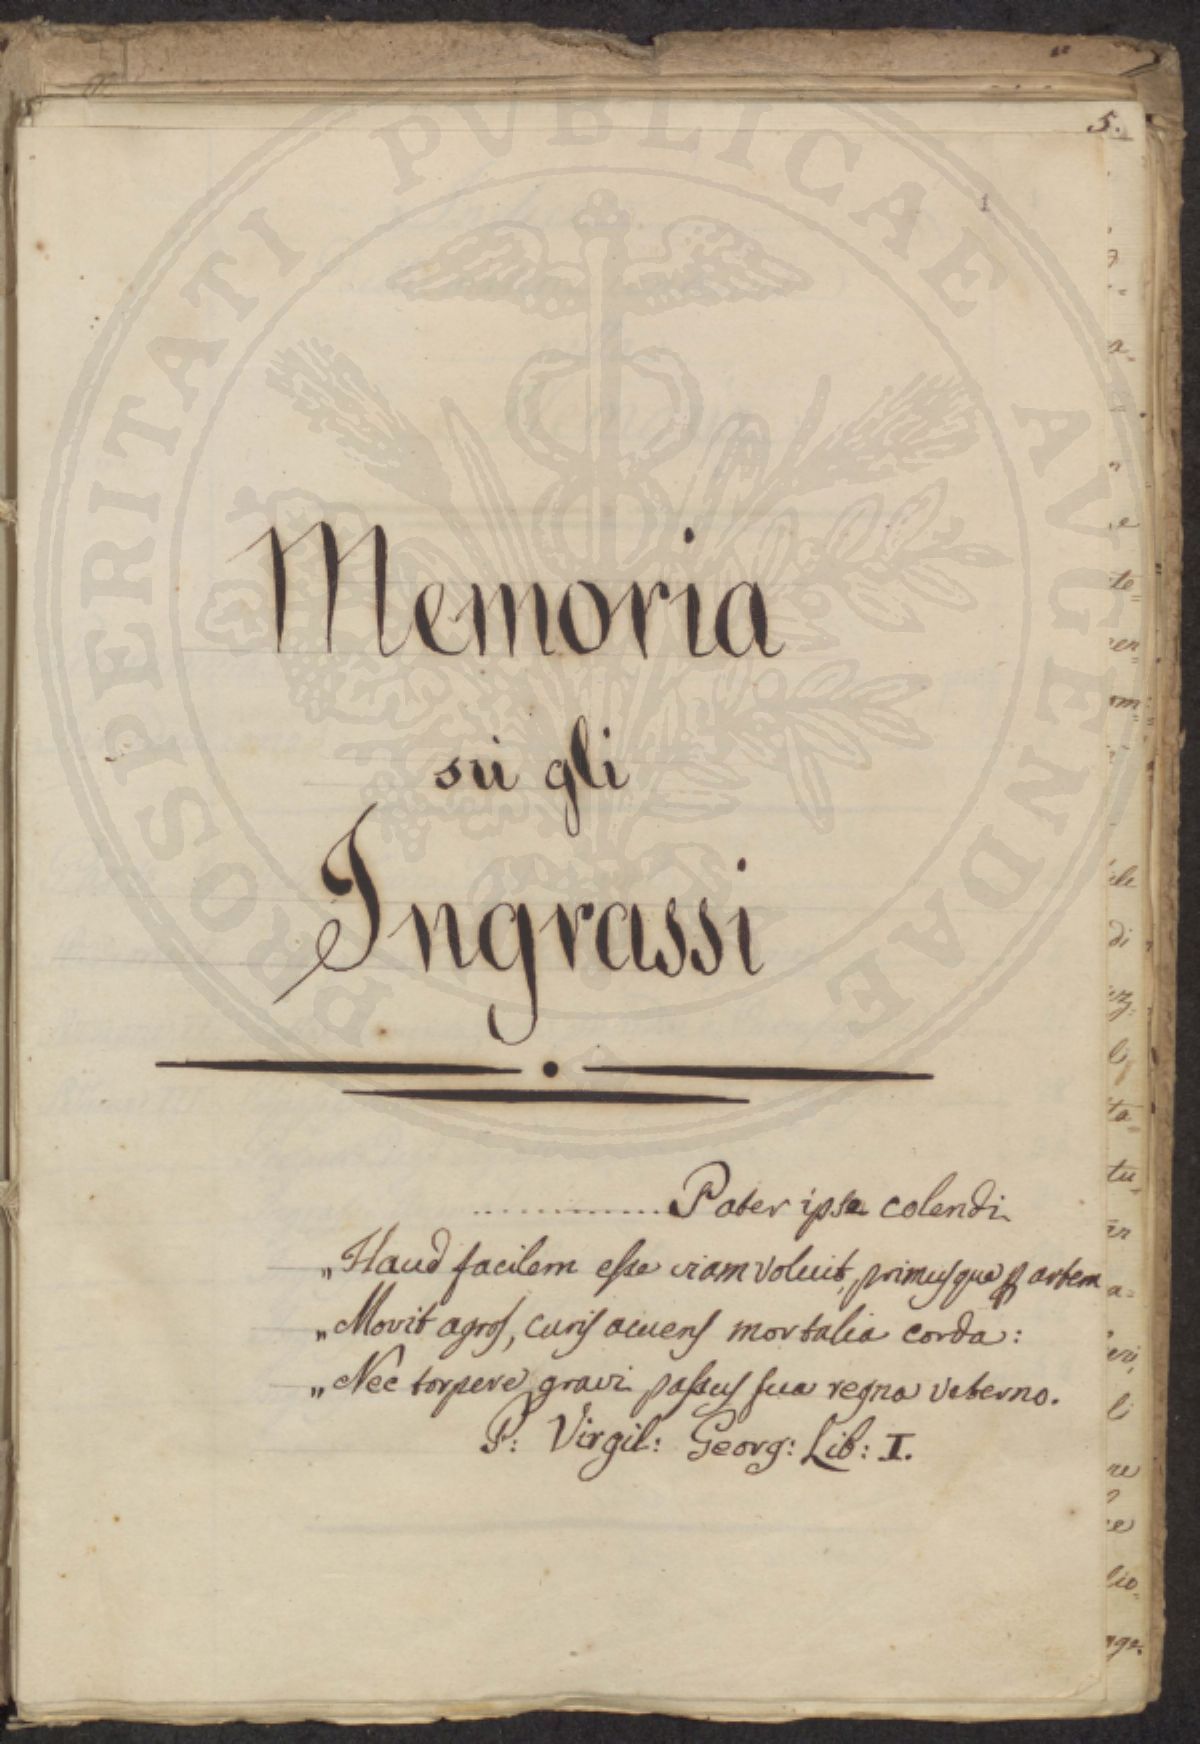 5.
1
Memoria
sù gli
Ingrassi
............. Pater ipse colendi
„Haud facilem esse viam voluit, primusque p artem
„Movit agros, curis acuens mortalia corda:
„Nec torpere gravi passus sua regna veterno.
P: Virgil: Georg: Lib: I.
PROSPERITATI PUBLICAE AVGENDAE